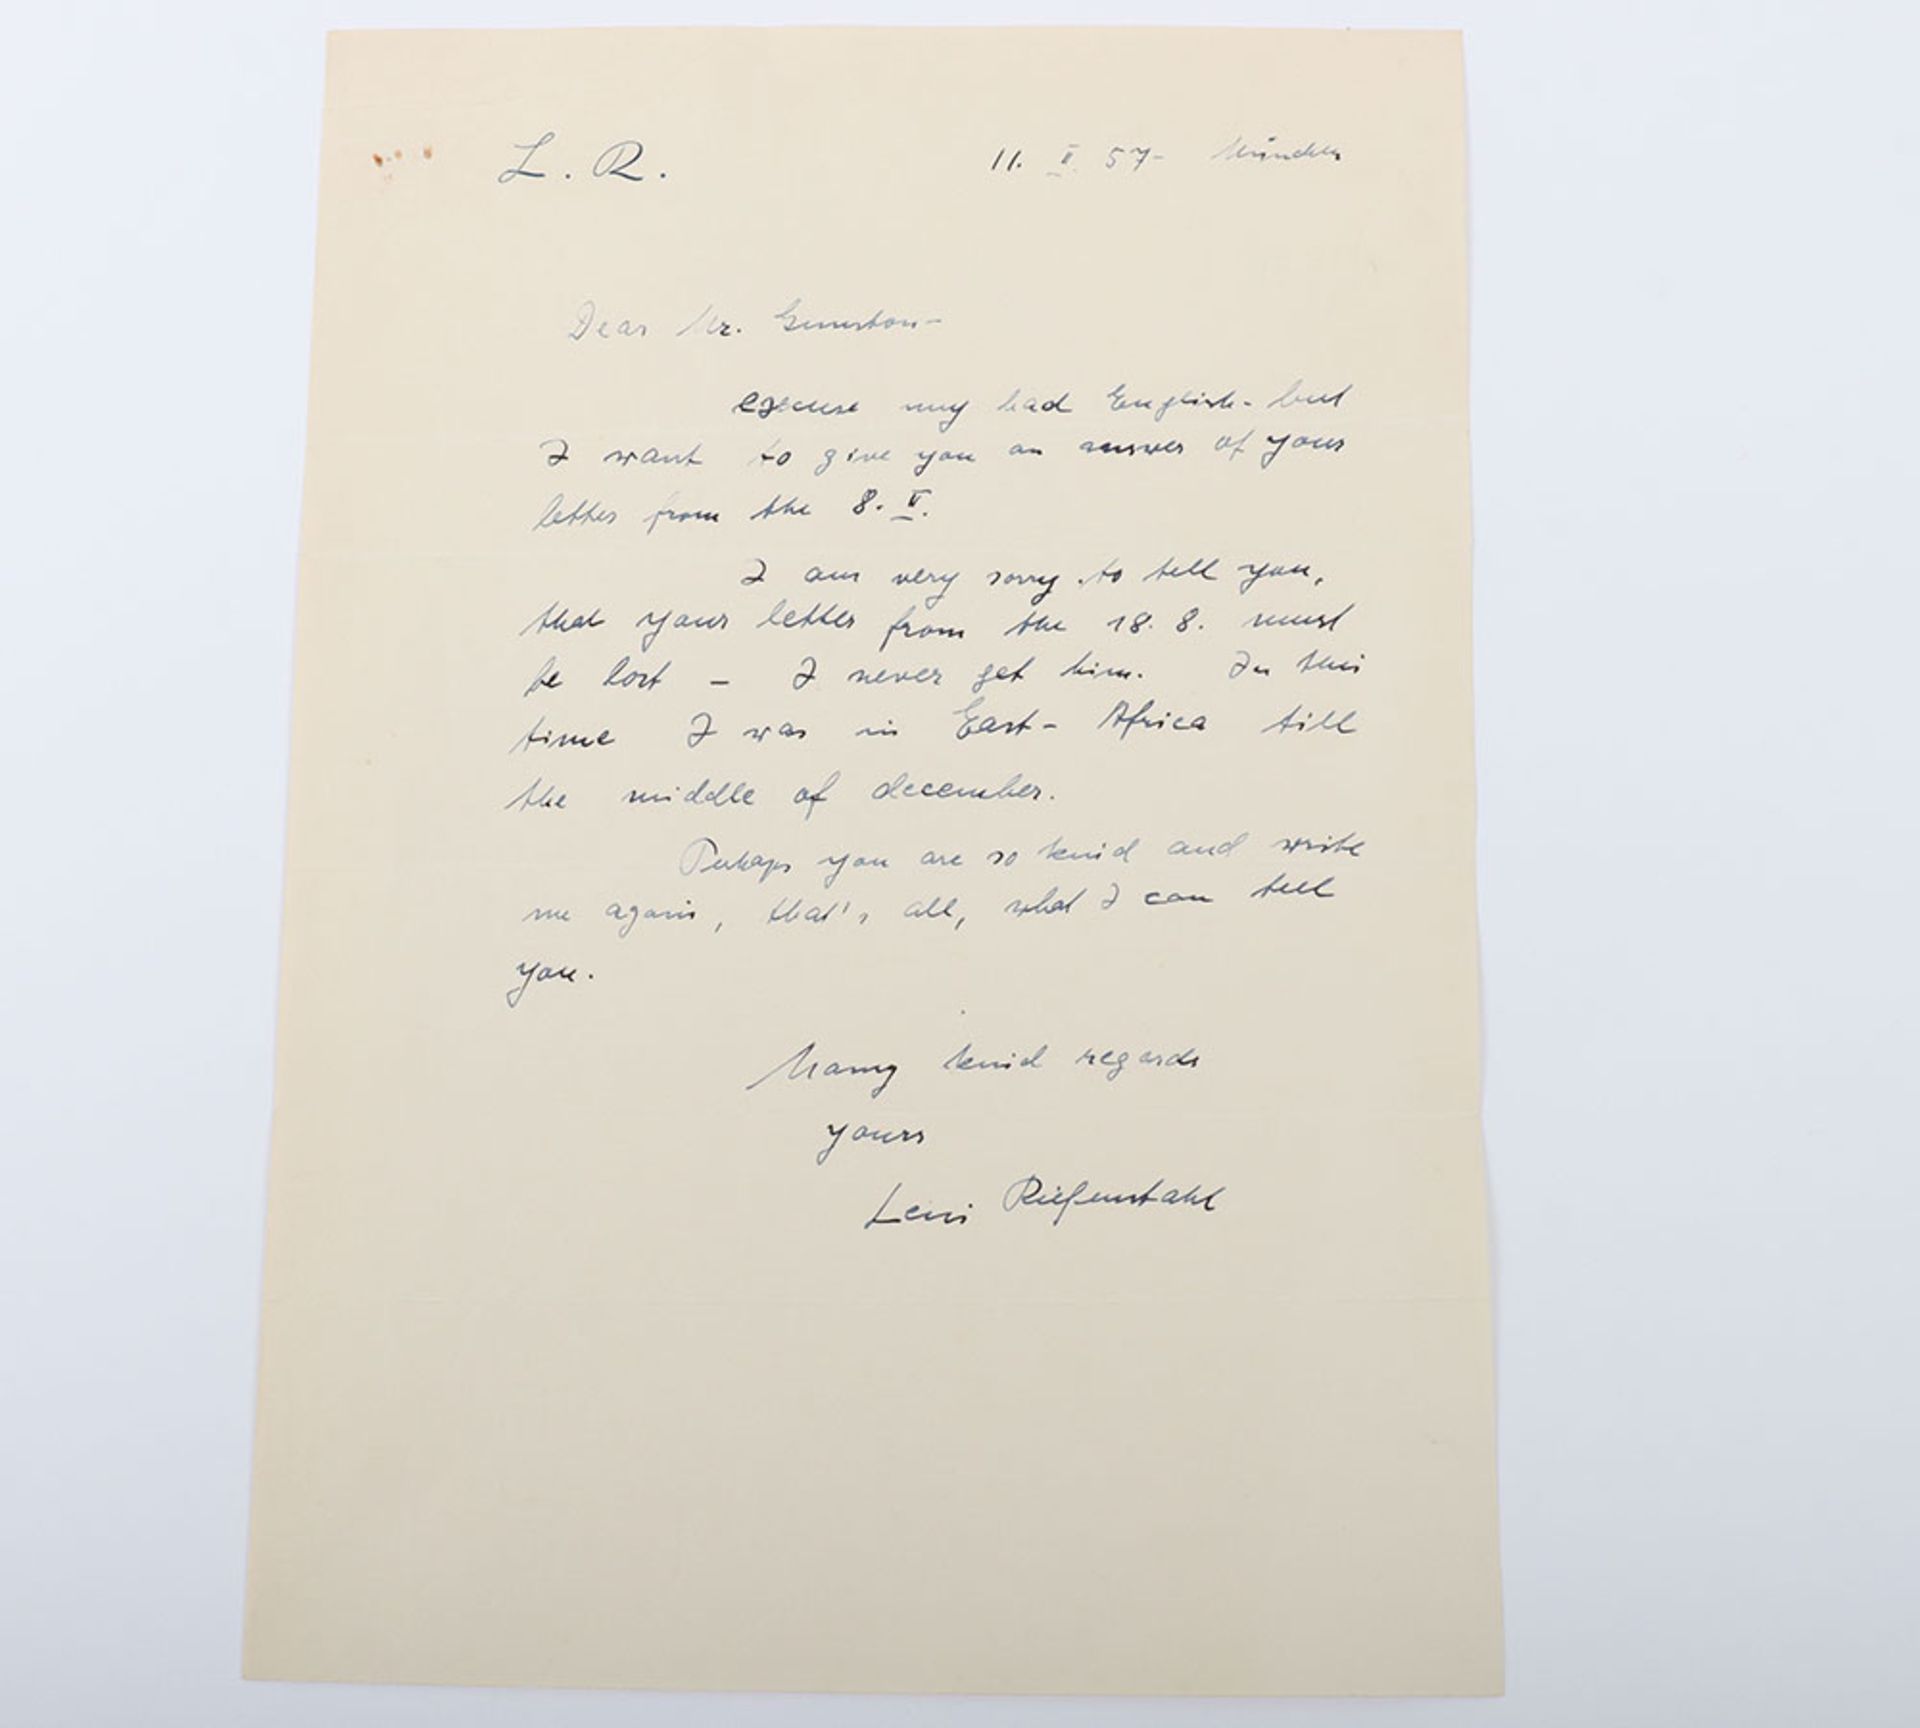 L. R.
11. II. 57- München
Dear Mr. Gunston-
excuse my bad English - but
I want to give you an answer of your
letter from the 8. II.
I am very sorry to tell you,
that your letter from the 18. 8. must
be lost - I never get him. In this
time I was in East-Africa till
the middle of december.
Perhaps you are so kind and write
me again, that's all, what I can tell
you.
Many kind regards
yours
Leni Riefenstahl